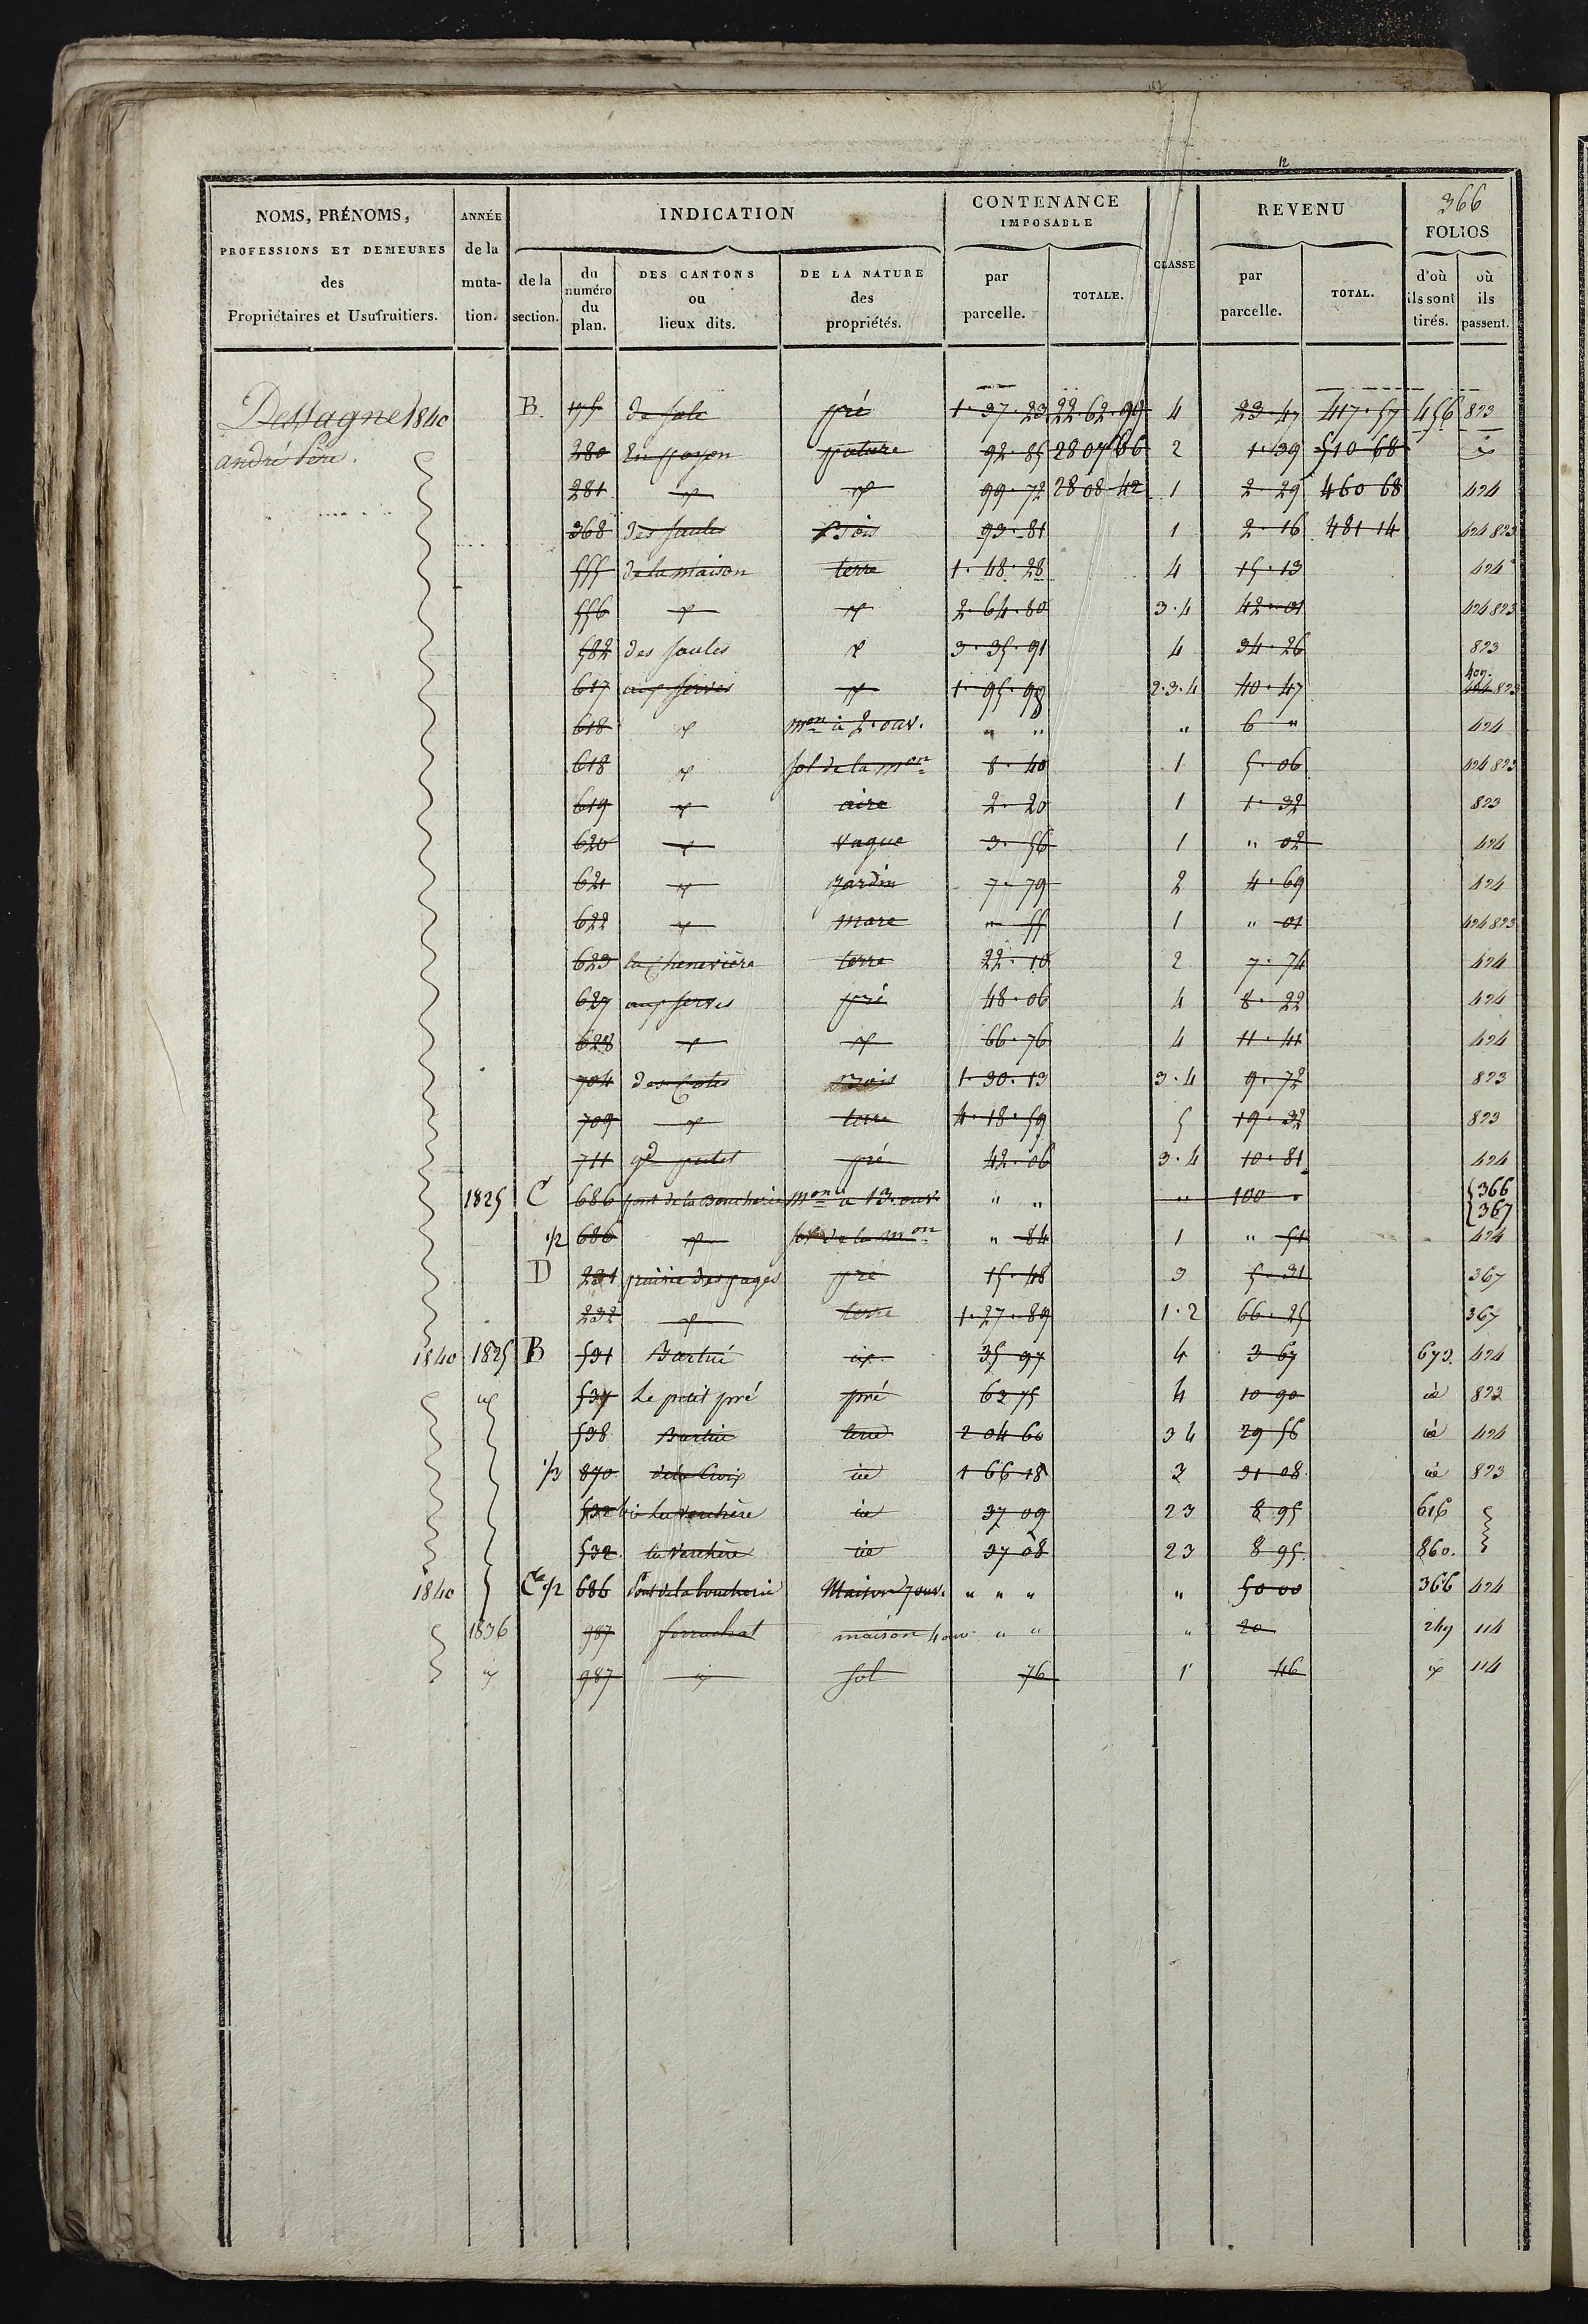 12
366
NOMS, PRÉNOMS, PROFESSIONS ET DEMEURES des Propriétaires et Usufruitiers.
ANNÉE de la muta- tion.
INDICATION
de la section.
du numéro du plan.
DES CANTONS ou lieux dits.
DE LA NATURE des propriétés.
CONTENANCE IMPOSABLE
par parcelle.
TOTALE.
CLASSE
REVENU
par parcelle.
TOTAL.
FOLIOS
d'où ils sont tirés.
où ils passent.
1840 B. 175 pré 1·37·23 22·62·99 4 23·47 417·57 456 823
andré Père. 280 pature 92·85 2807 66 2 1·39 510 68
281 99·72 2808 42 1 2·29 460 68 424
368 des saules Bois 93·81 1 2·16 481 14 424 823
555 de la maison terre 1·48·28 4 15·13 424
556 2·64·80 3·4 42·01 424 823
582 des saules 3·35·91 4 34·26 823
617 aux serves 1·95·98 2·3·4 40·47 424 823
618 mon à 2·ouv. " " " 6 " 424
618 sol de la mon 8·40 1 5·06 424 823
619 aire 2·20 1 1·32 823
620 vague 3·56 1 " 02 424
621 jardin 7·79 2 4·69 424
622 mare " 55 1 " 01 424 823
623 la Chenevière terre 22·10 2 7·74 424
627 aux serves pré 48·06 4 8·22 424
628 66·76 4 11·41 424
704 Bois 1·30·13 3·4 9·72 823
709 terre 4·18·59 5 19·32 823
711 pré 42·06 3·4 10·81 424
1825 C 686 pont de la Boucherie mon à 13·ouv. " " " 100 " {366 {367
1/2 686 sol de la mon " 84 1 " 51 424
D 231 prairie des pages pré 15·48 3 5·31 367
232 terre 1·27·89 1·2 66·25 367
1840 1825 B 531 35 97 4 3 67 673. 424
537 Le petit pré pré 63 75 4 10 90 id 823
538 terre 2 04 60 3 4 29 56 id 424
1/3 870 de la Croix id 1 66 18 3 31 08 id 823
532 bis la Verchère id 37 09 2 3 8 95 616
532 la Verchère id 37 08 2 3 8 95 860.
1840 1/2 686 Pont de la boucherie Maison 7 ouv. " " " " 50 00 366 424
1836 987 maison 4 ouv. " " " 20 249 114
987 sol 76 1 46 114